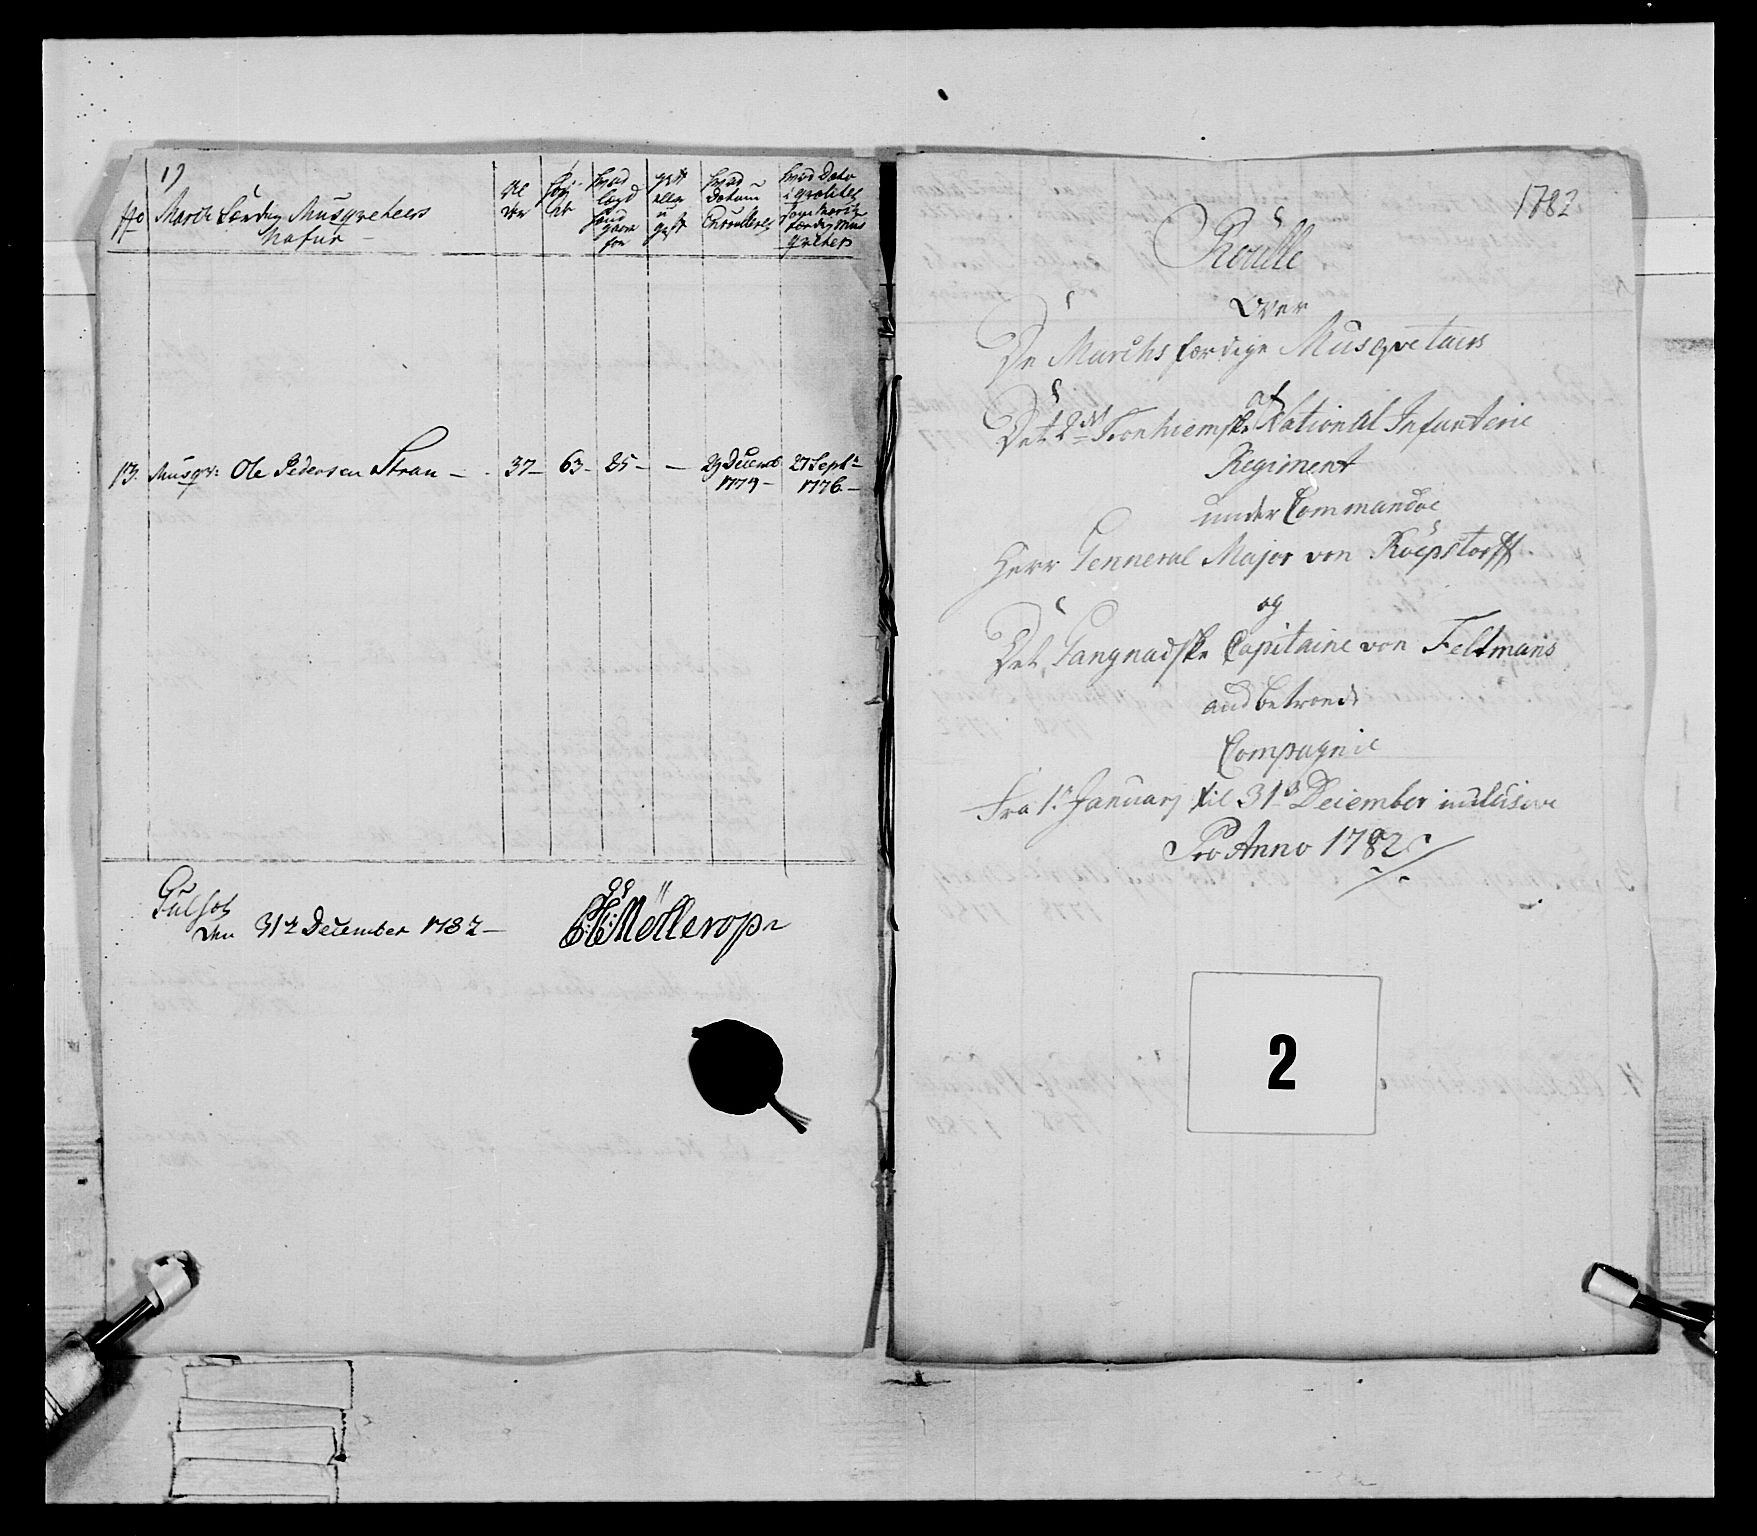 1)
No March Færdig Musqveteers Nafne
Al der
Høy de
hvad lægd hand gaar for
gift eller u gift
hvad Datum Enroulleret
hvad Dato
som March færdig Mus qveteer
13. Musqv: Ole Pedersen Stran – 37 – 63 – 85 – – 29 Decemb 27 Septr
1774 – 1776 –
den 31te December 1782 –
Möllerop
1782
Roulle
Over
De Marchsfærdige Musqveteers
af
Det 2det Tronhiemske National Infanterie
Regiment
under Commandoe
Herr Genneral Major von Röepstorff
og
Det Gangnadske Capitaine von Feltmans
andbetroede
Compagnie
Fra 1r January til 31te December inclusive
Pro Anno 1782
2